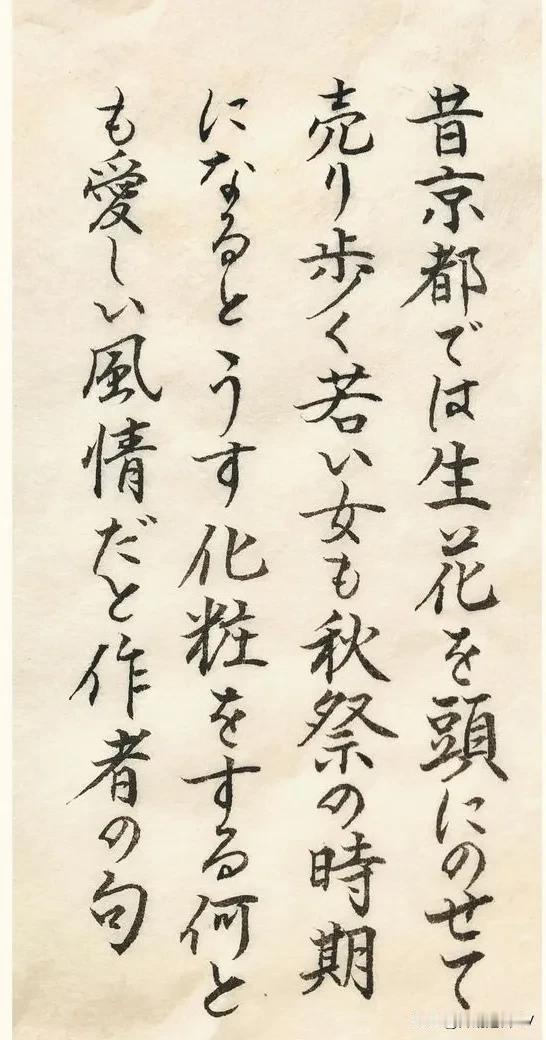 昔京都では生花を頭にのせて
売り歩く若い女も秋祭の時期
になるとうす化粧をする何と
も愛しい風情だと作者の句